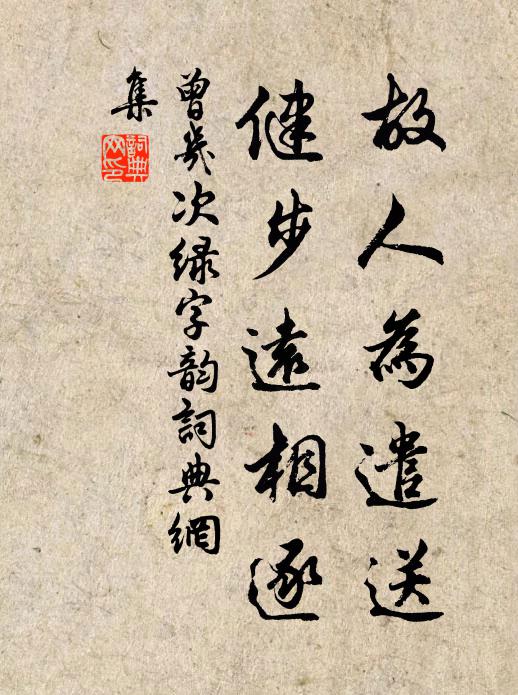 故人為遣送
健步遠相逐
曾幾次綠字韵詞典網
集
詞典
网印